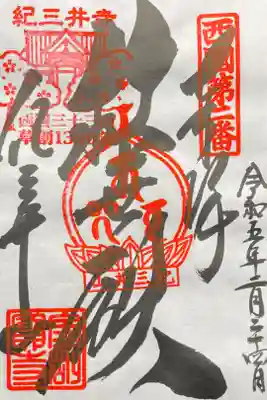 西國第二番
奉拝
令和五年二月二十四日
救世殿
紀三井寺
紀三井寺
西国三十三所
草創1300年